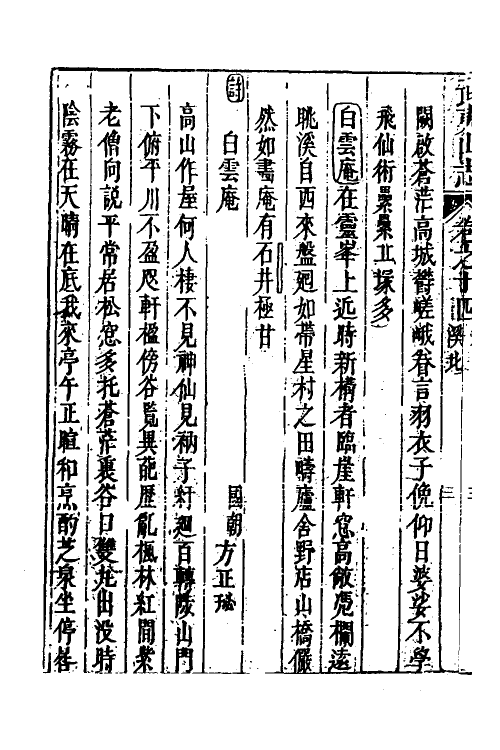 武夷山志 卷之十四 溪北 三
闕啟蒼茫高城鬱嵯峨眷言羽衣子俛仰日婆娑不學
飛仙術纍纍丘塚多
白雲庵在靈峯上近時新構者臨崖軒窓高敞凭欄遠
眺溪自西來盤廻如帶星村之田疇廬舍野店山橋儼
然如畫庵有石井極甘
詩
白雲庵 國朝方正瑗
高山作屋何人棲不見神仙見衲子紆廻百轉陵山門
下俯平川不盈咫軒楹傍谷覽異葩歷亂楓林紅間紫
老僧向說平常居松窓多托蒼茫裏谷口雙龍出没時
陰霧在天晴在底我來亭午正暄和烹酌芝泉坐停